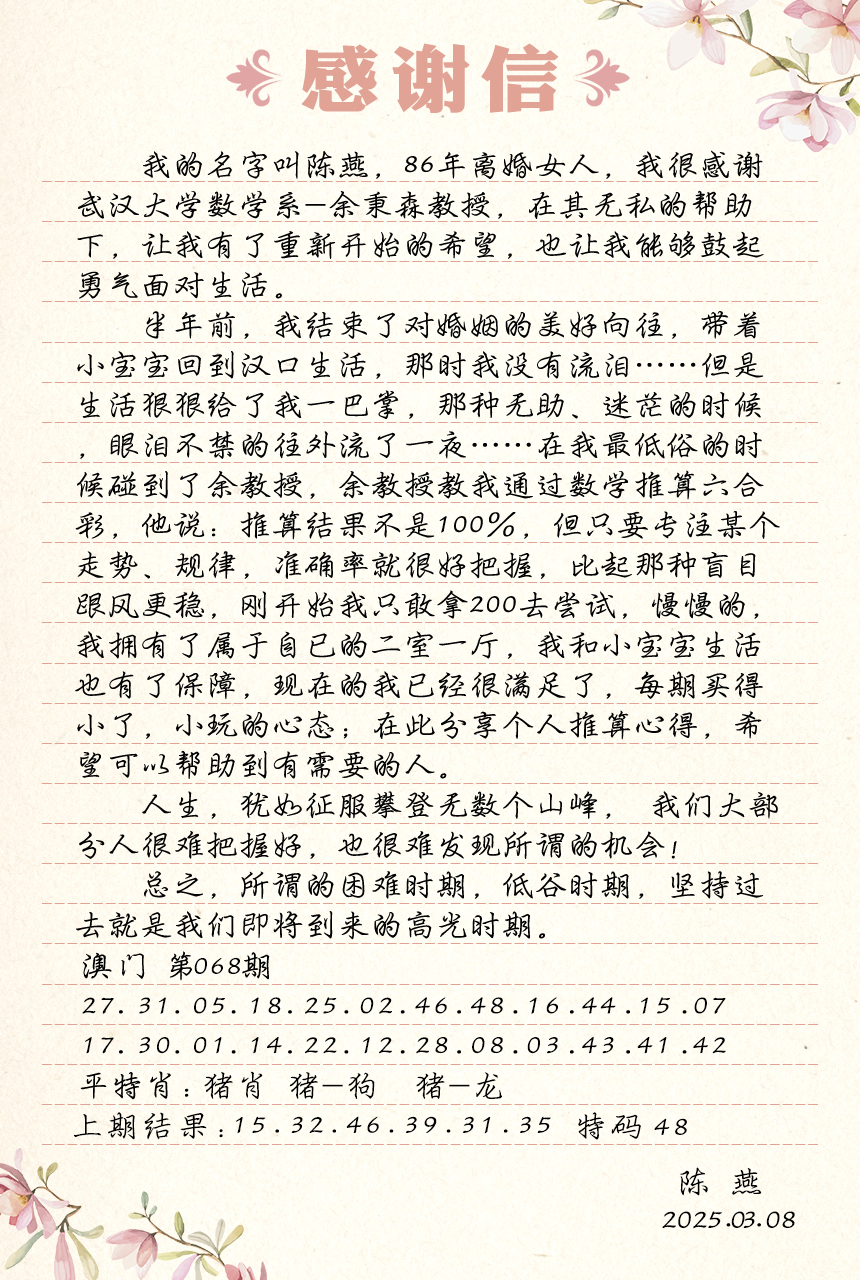 感谢信
我的名字叫陈燕，86年离婚女人，我很感谢
武汉大学数学系—余秉森教授，在其无私的帮助
下，让我有了重新开始的希望，也让我能够鼓起
勇气面对生活。
半年前，我结束了对婚姻的美好向往，带着
小宝宝回到汉口生活，那时我没有流泪……但是
生活狠狠给了我一巴掌，那种无助、迷茫的时候
，眼泪不禁的往外流了一夜……在我最低俗的时
候碰到了余教授，余教授教我通过数学推算六合
彩，他说：推算结果不是100%，但只要专注某个
走势、规律，准确率就很好把握，比起那种盲目
跟风更稳，刚开始我只敢拿200去尝试，慢慢的，
我拥有了属于自已的二室一厅，我和小宝宝生活
也有了保障，现在的我已经很满足了，每期买得
小了，小玩的心态；在此分享个人推算心得，希
望可以帮助到有需要的人。
人生，犹如征服攀登无数个山峰， 我们大部
分人很难把握好，也很难发现所谓的机会！
总之，所谓的困难时期，低谷时期，坚持过
去就是我们即将到来的高光时期。
澳门 第068期
27.31.05.18.25.02.46.48.16.44.15.07
17.30.01.14.22.12.28.08.03.43.41.42
平特肖：猪肖 猪—狗 猪—龙
上期结果：15.32.46.39.31.35 特码 48
陈 燕
2025.03.08